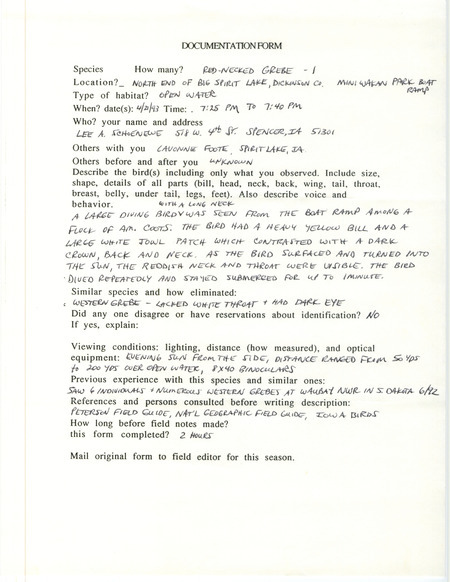 DOCUMENTATION FORM
Species How many? RED-NECKED GREBE - 1
Location? NORTH END OF BIG SPIRIT LAKE, DICKINSON CO. MINIWAKAN PARK BOAT
RAMP
Type of habitat? OPEN WATER
When? date(s): 4/2/93 Time: . 7:25 PM TO 7:40 PM
Who? your name and address
LEE A. SCHOENEWE 518 W. 4th St. SPENCER, IA 51301
Others with you LAVONNE FOOTE, SPIRIT LAKE, IA
Others before and after you UNKNOWN
Describe the bird(s) including only what you observed. Include size,
shape, details of all parts (bill, head, neck, back, wing, tail, throat,
breast, belly, under tail, legs, feet). Also describe voice and
behavior. WITH A LONG NECK
A LARGE DIVING BIRD WAS SEEN FROM THE BOAT RAMP AMONG A
FLOCK OF AM. COOTS. THE BIRD HAD A HEAVY YELLOW BILL AND A
LARGE WHITE JOWL PATCH WHICH CONTRASTED WITH A DARK
CROWN, BACK AND NECK. AS THE BIRD SURFACED AND TURNED INTO
THE SUN, THE REDDISH NECK AND THROAT WERE VISIBLE. THE BIRD
DIVED REPEATEDLY AND STAYED SUBMERGED FOR UP TO 1 MINUTE.
Similar species and how eliminated:
WESTERN GREBE - LACKED WHITE THROAT + HAD DARK EYE
Did any one disagree or have reservations about identification? NO
If yes, explain:
Viewing conditions: lighting, distance (how measured), and optical
equipment: EVENING SUN FROM THE SIDE, DISTANCE RANGED FROM 50 YDS
TO 200 YDS OVER OPEN WATER, 8X40 BINOCULARS
Previous experience with this species and similar ones:
SAW 6 INDIVIDUALS + NUMEROUS WESTERN GREBES AT WAUBAY NWR IN S. DAKOTA 6/92
References and persons consulted before writing description:
PETERSON FIELD GUIDE, NAT'L GEOGRAPHIC FIELD GUIDE, IOWA BIRDS
How long before field notes made?
this form completed? 2 HOURS
Mail original form to field editor for this season.